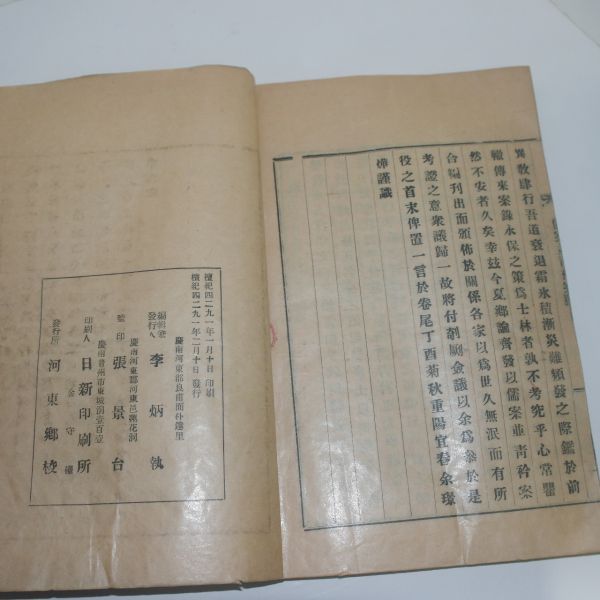 異敎肆行吾道衰退霜氷積漸災難頻發之際鑑於前
轍傳來案錄永保之策爲士林者孰不考究乎心常瞿
然不安者久矣幸玆今夏鄕論齊發以儒案並靑衿案
合編刊出而頒佈於關係各家以爲世久無泯而有所
考證之意衆議歸一故將付剞劂僉議以余爲參於是
役之首末俾置一言於卷尾丁酉菊秋重陽宜春余璟
燁謹識
檀紀四二九一年一月十日 印刷
檀紀四二九一年二月十日 發行
慶南河東郡良甫面朴達里
編輯兼發行人 李炳執
慶南河東郡河東邑洞
監印 張景台
慶南晋州市東城洞壹百壹
印刷人 金守
日新印刷所
發行所 河東鄕校